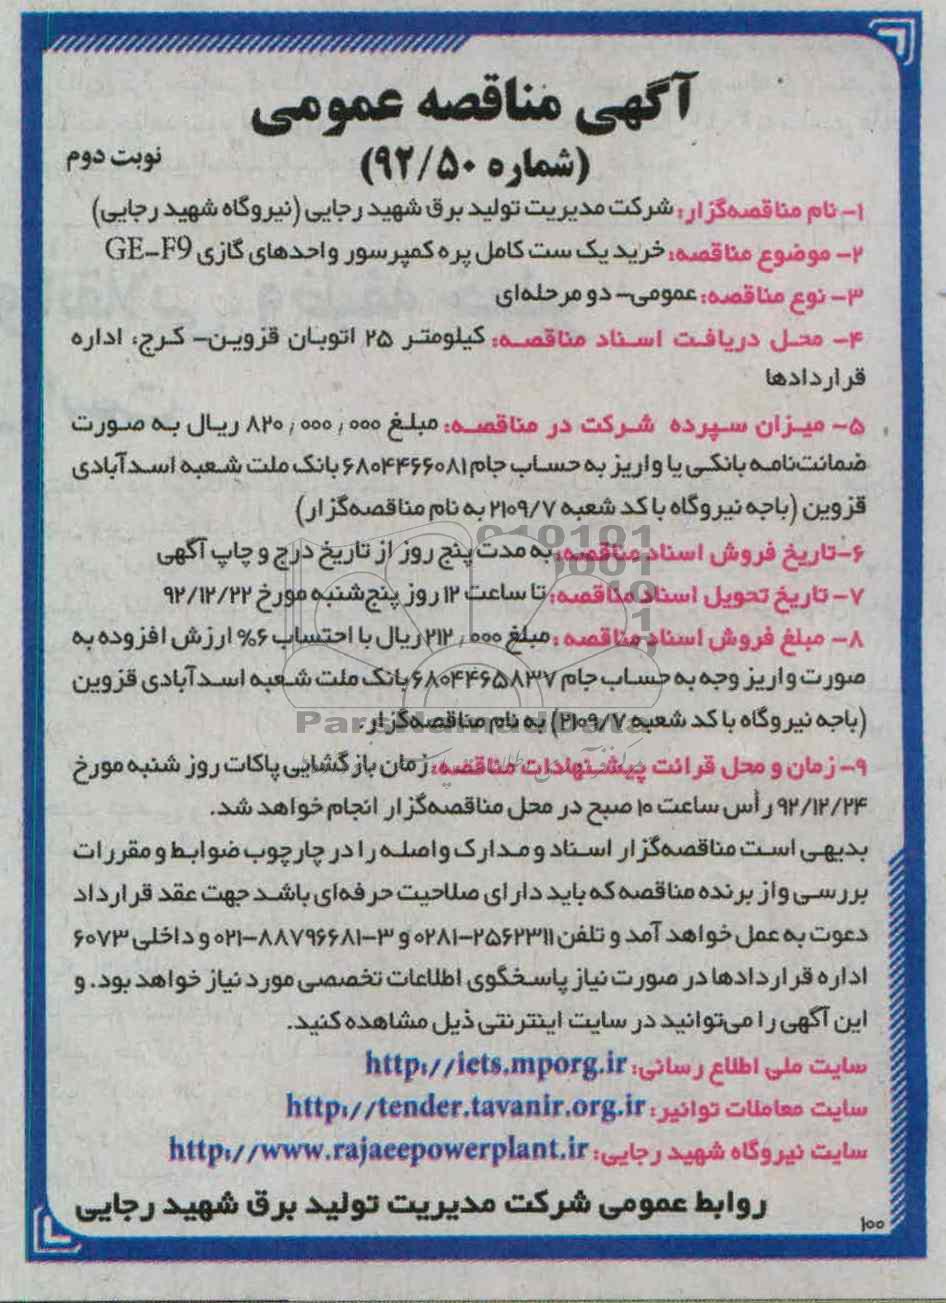 آگهی مناقصه عمومی
(شماره ۹۲/۵۰)
نوبت دوم
۱- نام مناقصه‌گزار: شرکت مدیریت تولید برق شهید رجایی (نیروگاه شهید رجایی)
۲- موضوع مناقصه: خرید یک ست کامل پره کمپرسور واحدهای گازی GE-F9
۳- نوع مناقصه: عمومی- دو مرحله‌ای
۴- محل دریافت اسناد مناقصه: کیلومتر ۲۵ اتوبان قزوین- کرج، اداره
قراردادها
۵- میزان سپرده شرکت در مناقصه: مبلغ ۸۲۰٫۰۰۰٫۰۰۰ ریال به صورت
ضمانت‌نامه بانکی یا واریز به حساب جام ۶۸۰۴۴۶۶۰۸۱ بانک ملت شعبه اسدآبادی
قزوین (باجه نیروگاه با کد شعبه ۲۱۰۹/۷ به نام مناقصه‌گزار)
۶-تاریخ فروش اسناد مناقصه: به مدت پنج روز از تاریخ درج و چاپ آگهی
۷- تاریخ تحویل اسناد مناقصه: تا ساعت ۱۲ روز پنج‌شنبه مورخ ۹۲/۱۲/۲۲
۸- مبلغ فروش اسناد مناقصه: مبلغ ۲۱۲٫۰۰۰ ریال با احتساب ۶% ارزش افزوده به
صورت واریز وجه به حساب جام ۶۸۰۴۴۶۵۸۳۷ بانک ملت شعبه اسدآبادی قزوین
(باجه نیروگاه با کد شعبه ۲۱۰۹/۷) به نام مناقصه‌گزار.
ParsNamadData
۹- زمان و محل قرائت پیشنهادات مناقصه: زمان بازگشایی پاکات روز شنبه مورخ
۹۲/۱۲/۲۴ رأس ساعت ۱۰ صبح در محل مناقصه‌گزار انجام خواهد شد.
بدیهی است مناقصه‌گزار اسناد و مدارک واصله را در چارچوب ضوابط و مقررات
بررسی و از برنده مناقصه که باید دارای صلاحیت حرفه‌ای باشد جهت عقد قرارداد
دعوت به عمل خواهد آمد و تلفن ۲۵۶۲۳۱۱-۰۲۸۱ و ۳-۸۸۷۹۶۶۸۱-۰۲۱ و داخلی ۶۰۷۳
اداره قراردادها در صورت نیاز پاسخگوی اطلاعات تخصصی مورد نیاز خواهد بود. و
این آگهی را می‌توانید در سایت اینترنتی ذیل مشاهده کنید.
سایت ملی اطلاع رسانی: http://iets.mporg.ir
سایت معاملات توانیر: http://tender.tavanir.org.ir
سایت نیروگاه شهید رجایی: http://www.rajaeepowerplant.ir
روابط عمومی شرکت مدیریت تولید برق شهید رجایی
۱۰۰